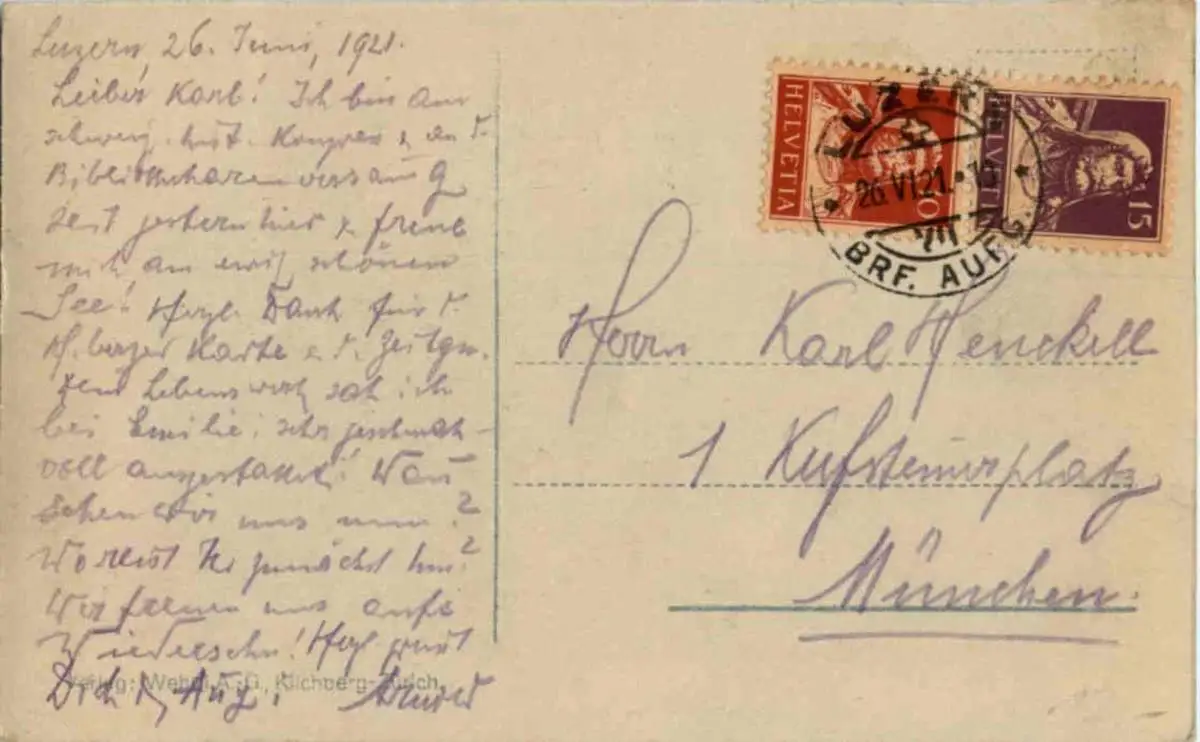 Luzern, 26. Juni, 1921.
Lieber Karl! Ich bin am
schweiz. hist. Kongress & an d.
Bibliothekaren
seit gestern hier & freue
mich am ewig schönen
See! Herzl. Dank für d.
Karte & d.
Lebenswerk sah ich
bei Emilie: sehr geschmack-
voll ausgestattet! Wann
sehen wir uns nun?
Wo reist Ihr zunächst hin?
Wir freuen uns aufs
Wiedersehn! Herzl. grüsst
Dich
Verlag: Wehrli A.-G., Kilchberg-Zürich
HELVETIA
10
HELVETIA
15
LUZERN
26.VI.21.
VII
BRF. AUFG.
Herrn Karl Henckell
1 Kufsteinerplatz
München.